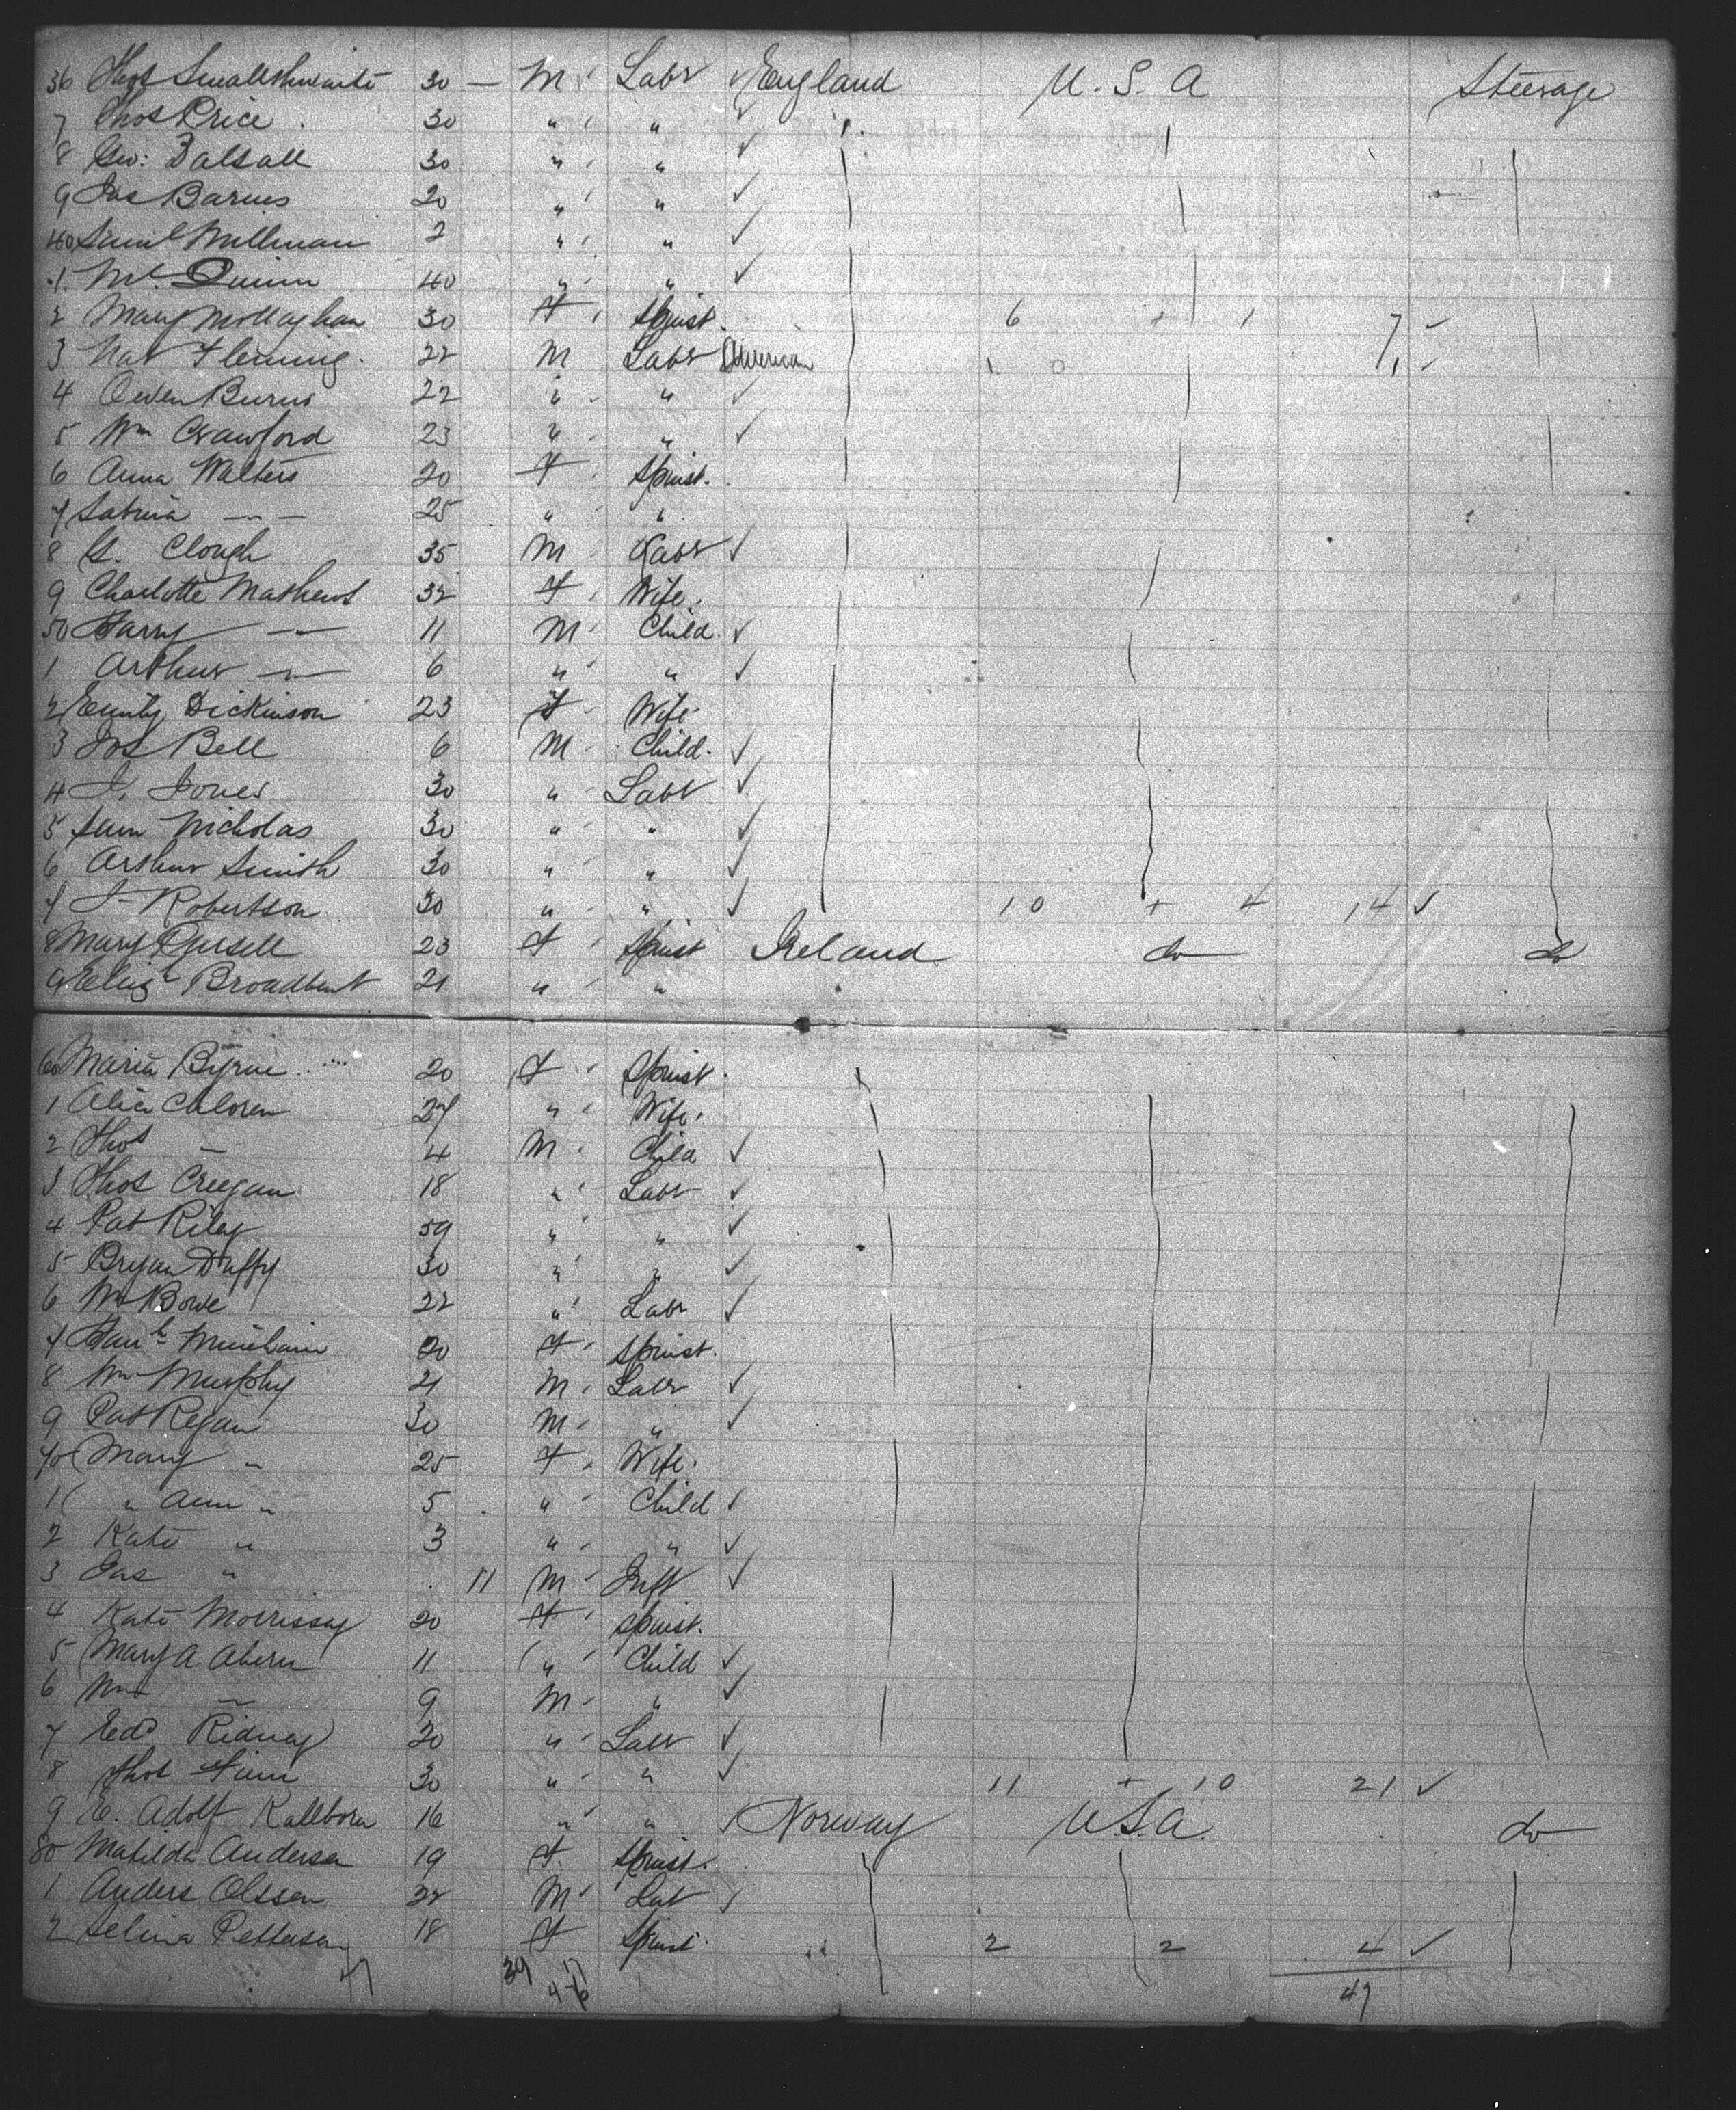 36 Thos Smallthwaite 30 — M Labr England U.S.A Steerage
7 Thos Price 30 " "
8 Geo: Balsall 30 " "
9 Jas Barnes 20 " "
40 Saml Millman 2 " "
1 Ml Quinn 40 " "
2 Mary Mollaghan 30 F Spinst. 6 + 1 7
3 Nat Fleming 22 M Labr American 1 0 1
4 Owen Burns 22 " "
5 Wm Crawford 23 " "
6 Anna Walters 20 F Spinst.
7 Sabina — " — 25 " "
8 Clough 35 M Labr
9 Charlotte Mathews 32 F Wife
50 Harry — " — 11 M Child
1 Arthur — " — 6 " "
2 Emily Dickinson 23 F Wife
3 Jos Bell 6 M Child
4 J. Jones 30 " Labr
5 Sam Nicholas 30 " "
6 Arthur Smith 30 " "
7 J Robertson 30 " " 10 + 4 14
8 Mary Pursell 23 F Spinst Ireland do do
9 Elizh Broadbent 21 " "
60 Maria Byrne 20 F Spinst.
1 Alice Cloren 27 " Wife
2 Thos — 4 M Child
3 Thos Creegan 18 " Labr
4 Pat Riley 59 " "
5 Bryan Duffy 30 " "
6 Wm Bowe 22 " Labr
7 Hanh Minihain 20 F Spinst.
8 Wm Murphy 21 M Labr
9 Pat Regan 30 M "
70 Mary " 25 F Wife
1 " Ann " 5 " Child
2 Kate " 3 " "
3 Jas " 11 M Inft
4 Kate Morrissey 20 F Spinst.
5 Mary A Ahern 11 " Child
6 Wm — 9 M "
7 Edd Ridway 20 " Labr
8 Thos Finn 30 " " 11 + 10 21
9 E. Adolf Kallborn 16 " " Norway U.S.A. do
80 Matilda Andersen 19 F Spinst.
1 Anders Olssen 22 M Lab
2 Selina Pettersen 18 F Spinst. 2 2 4
47 29 17 47